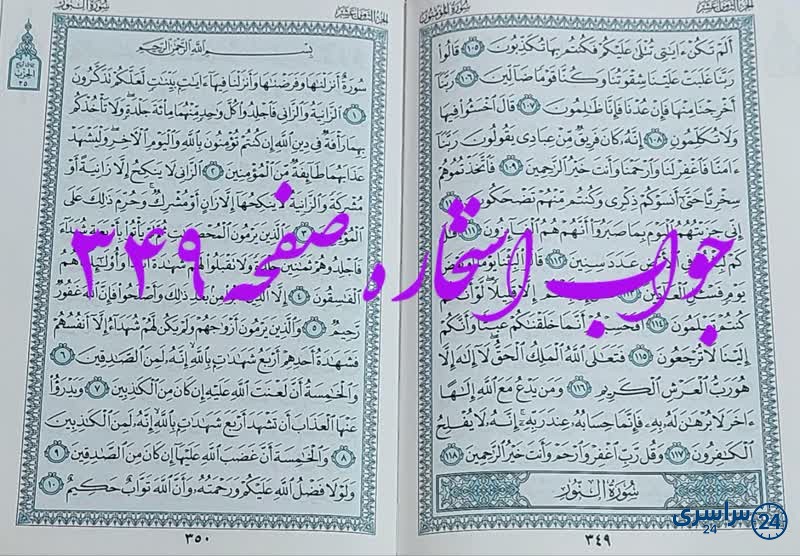 سُورَةُ المُؤْمِنُونَ
الجُزْءُ الثَّامِنَ عَشَرَ
أَلَمْ تَكُنْ ءَايَٰتِى تُتْلَىٰ عَلَيْكُمْ فَكُنتُم بِهَا تُكَذِّبُونَ ١٠٥ قَالُوا۟
رَبَّنَا غَلَبَتْ عَلَيْنَا شِقْوَتُنَا وَكُنَّا قَوْمًا ضَآلِّينَ ١٠٦ رَبَّنَآ
أَخْرِجْنَا مِنْهَا فَإِنْ عُدْنَا فَإِنَّا ظَٰلِمُونَ ١٠٧ قَالَ ٱخْسَـُٔوا۟ فِيهَا
وَلَا تُكَلِّمُونِ ١٠٨ إِنَّهُۥ كَانَ فَرِيقٌ مِّنْ عِبَادِى يَقُولُونَ رَبَّنَآ
ءَامَنَّا فَٱغْفِرْ لَنَا وَٱرْحَمْنَا وَأَنتَ خَيْرُ ٱلرَّٰحِمِينَ ١٠٩ فَٱتَّخَذْتُمُوهُمْ
سِخْرِيًّا حَتَّىٰٓ أَنسَوْكُمْ ذِكْرِى وَكُنتُم مِّنْهُمْ تَضْحَكُونَ ١١٠
إِنِّى جَزَيْتُهُمُ ٱلْيَوْمَ بِمَا صَبَرُوٓا۟ أَنَّهُمْ هُمُ ٱلْفَآئِزُونَ ١١١ قَٰلَ
كَمْ عَدَدَ سِنِينَ ١١٢ قَالُوا۟ لَبِثْنَا يَوْمًا أَوْ بَعْضَ
يَوْمٍ فَسْـَٔلِ إِلَّا قَلِيلًا لَّوْ أَنَّكُمْ
كُنتُمْ تَعْلَمُونَ ١١٤ أَفَحَسِبْتُمْ أَنَّمَا خَلَقْنَٰكُمْ عَبَثًا وَأَنَّكُمْ
إِلَيْنَا لَا تُرْجَعُونَ ١١٥ فَتَعَٰلَى ٱللَّهُ ٱلْمَلِكُ ٱلْحَقُّ لَآ إِلَٰهَ إِلَّا
هُوَ رَبُّ ٱلْعَرْشِ ٱلْكَرِيمِ ١١٦ وَمَن يَدْعُ مَعَ ٱللَّهِ إِلَٰهًا
ءَاخَرَ لَا بُرْهَٰنَ لَهُۥ بِهِۦ فَإِنَّمَا حِسَابُهُۥ عِندَ رَبِّهِۦٓ إِنَّهُۥ لَا يُفْلِحُ
ٱلْكَٰفِرُونَ ١١٧ وَقُل رَّبِّ ٱغْفِرْ وَٱرْحَمْ وَأَنتَ خَيْرُ ٱلرَّٰحِمِينَ ١١٨
سُورَةُ النُّورِ
٣٤٩
الجُزْءُ الثَّامِنَ عَشَرَ
سُورَةُ النُّورِ
الحزب
٣٥
بِسْمِ ٱللَّهِ ٱلرَّحْمَٰنِ ٱلرَّحِيمِ
سُورَةٌ أَنزَلْنَٰهَا وَفَرَضْنَٰهَا وَأَنزَلْنَا فِيهَآ ءَايَٰتٍۭ بَيِّنَٰتٍ لَّعَلَّكُمْ تَذَكَّرُونَ
١ ٱلزَّانِيَةُ وَٱلزَّانِى فَٱجْلِدُوا۟ كُلَّ وَٰحِدٍ مِّنْهُمَا مِا۟ئَةَ جَلْدَةٍ وَلَا تَأْخُذْكُم
بِهِمَا رَأْفَةٌ فِى دِينِ ٱللَّهِ إِن كُنتُمْ تُؤْمِنُونَ بِٱللَّهِ وَٱلْيَوْمِ ٱلْءَاخِرِ وَلْيَشْهَدْ
عَذَابَهُمَا طَآئِفَةٌ مِّنَ ٱلْمُؤْمِنِينَ ٢ ٱلزَّانِى لَا يَنكِحُ إِلَّا زَانِيَةً أَوْ
مُشْرِكَةً وَٱلزَّانِيَةُ لَا يَنكِحُهَآ إِلَّا زَانٍ أَوْ مُشْرِكٌ وَحُرِّمَ ذَٰلِكَ عَلَى
ٱلْمُؤْمِنِينَ ٣ وَٱلَّذِينَ يَرْمُونَ ٱلْمُحْصَنَٰتِ ثُمَّ لَمْ يَأْتُوا۟ بِأَرْبَعَةِ شُهَدَآءَ
فَٱجْلِدُوهُمْ ثَمَٰنِينَ جَلْدَةً وَلَا تَقْبَلُوا۟ لَهُمْ شَهَٰدَةً أَبَدًا وَأُو۟لَٰٓئِكَ هُمُ
ٱلْفَٰسِقُونَ ٤ إِلَّا ٱلَّذِينَ تَابُوا۟ مِنۢ بَعْدِ ذَٰلِكَ وَأَصْلَحُوا۟ فَإِنَّ ٱللَّهَ غَفُورٌ
رَّحِيمٌ ٥ وَٱلَّذِينَ يَرْمُونَ أَزْوَٰجَهُمْ وَلَمْ يَكُن لَّهُمْ شُهَدَآءُ إِلَّآ أَنفُسُهُمْ
فَشَهَٰدَةُ أَحَدِهِمْ أَرْبَعُ شَهَٰدَٰتٍۭ بِٱللَّهِ إِنَّهُۥ لَمِنَ ٱلصَّٰدِقِينَ ٦
وَٱلْخَٰمِسَةُ أَنَّ لَعْنَتَ ٱللَّهِ عَلَيْهِ إِن كَانَ مِنَ ٱلْكَٰذِبِينَ ٧ وَيَدْرَؤُا۟
عَنْهَا ٱلْعَذَابَ أَن تَشْهَدَ أَرْبَعَ شَهَٰدَٰتٍۭ بِٱللَّهِ إِنَّهُۥ لَمِنَ ٱلْكَٰذِبِينَ
٨ وَٱلْخَٰمِسَةَ أَنَّ غَضَبَ ٱللَّهِ عَلَيْهَآ إِن كَانَ مِنَ ٱلصَّٰدِقِينَ ٩
وَلَوْلَا فَضْلُ ٱللَّهِ عَلَيْكُمْ وَرَحْمَتُهُۥ وَأَنَّ ٱللَّهَ تَوَّابٌ حَكِيمٌ ١٠
٣٥٠
جواب استخاره صفحه ۳۴۹
سراسری 24
24